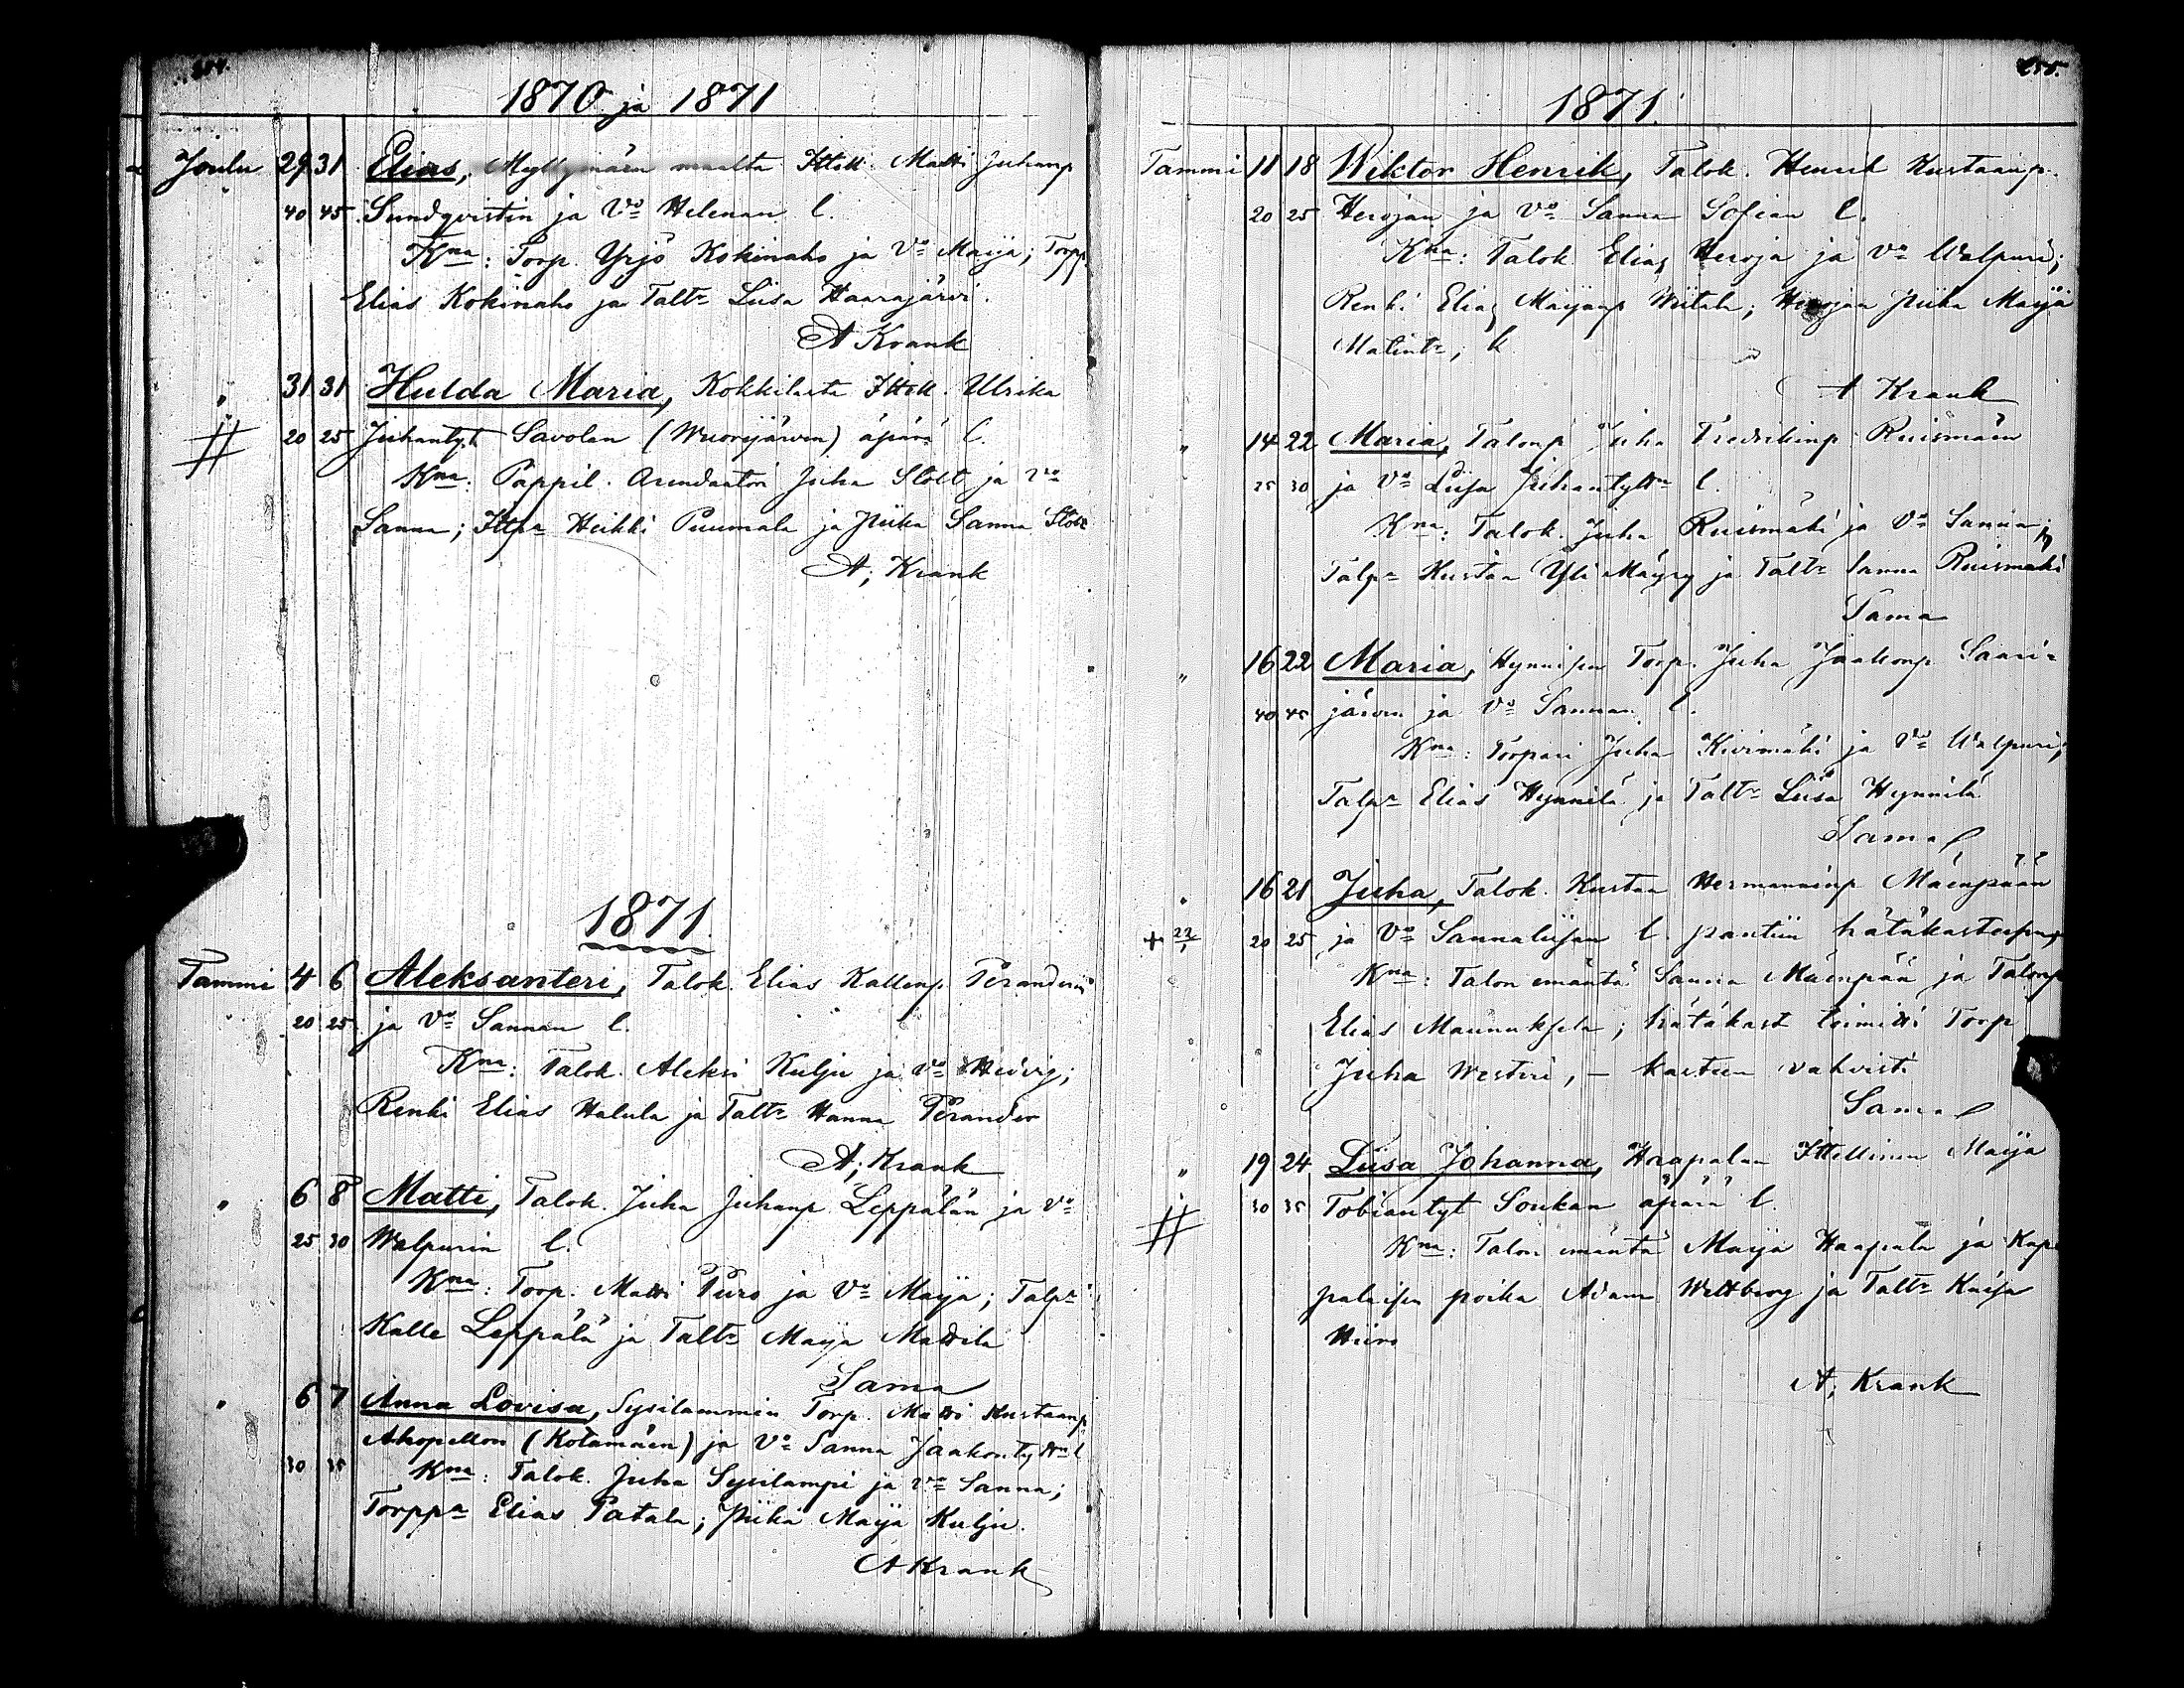 1870 ja 1871
Joulu 29 31 Elias, Myllymäen maalta Ittell. Matti Juhanp
40 45 Sundqvistin ja Vo Helenan l.
Kna: Torp. Yrjö Kokinaho ja Vo Maija; Torpp.
Elias Kokinaho ja Taltr Liisa Haarajärvi.
A Krank
„ 31 31 Hulda Maria, Kokkilasta Ittell. Ulrika
# 20 25 Juhantyt Savolan (Wuorijärven) äpärä l.
Kna: Pappil. Arendaatori Juha Stolt ja Vo
Sanna; Ittpr Heikki Puumala ja Piika Sanna Stolt
A; Krank
1871.
Tammi 4 6 Aleksanteri, Talok. Elias Kallenp. Peranderin
20 25 ja Vo Sannan l.
Kna: Talok. Aleksi Kulju ja Vo Hedvig;
Renki Elias Halula ja Taltr Hanna Perander
A; Krank
„ 6 8 Matti, Talok. Juha Juhanp Leppälän ja Vo
25 30 Walpurin l.
Kna: Torp. Matti Puro ja Vo Maija; Talpr
Kalle Leppälä ja Taltr Maija Mattila
Sama
„ 6 7 Anna Lovisa, Sysilammin Torp. Matti Kustaanp
Ahopellon (Kotamäen) ja Vo Sanna Jaakontyttr l
30 35 Kna: Talok. Juha Sysilampi ja Vo Sanna;
Torppr Elias Patala; Piika Maija Kulju.
A Krank
255.
1871.
Tammi 11 18 Wiktor Henrik, Talok. Henrik Kustaanp.
20 25 Herojan ja Vo Sanna Sofian l.
Kna: Talok. Elias Heroja ja Vo Walpuri;
Renki Elias Maijanp Wiitala; Herojan Piika Maija
Matintr, k
A Krank
„ 14 22 Maria, Talonp Juha Fredrikinp Ruismäen
25 30 ja Vo Liisa Juhantyttr l.
Kna: Talok. Juha Ruismäki ja Vo Sanna;
Talpr Kustaa Yli Mäyry ja Taltr Sanna Ruismäki
Sama
„ 16 22 Maria, Hynnisen Torp. Juha Jaakonp Saari-
40 45 järven ja Vo Sannan l.
Kna: Torpari Juha Kivimäki ja Vo Walpuri;
Talpr Elias Hynnilä ja Taltr Liisa Hynnilä
Sama
„ 16 21 Juha, Talok. Kustaa Hermanninp Mäenpään
+ 22/1 20 25 ja Vo Sannaliisan l. pantiin hätäkasteesen
Kna: Talon emäntä Sanna Mäenpää ja Talonp
Elias Maunuksela; hätäkast toimitti Torp
Juha Westeri, – kasteen vahvisti
Sama
„ 19 24 Liisa Johanna, Haapalan Ittellinen Maija
# 30 35 Tobiantyt Soukan äpärä l.
Kna: Talon emäntä Maija Haapala ja Kap-
palaisen poika Adam Weltberg ja Taltr Kaisa
Hiiro
A; Krank